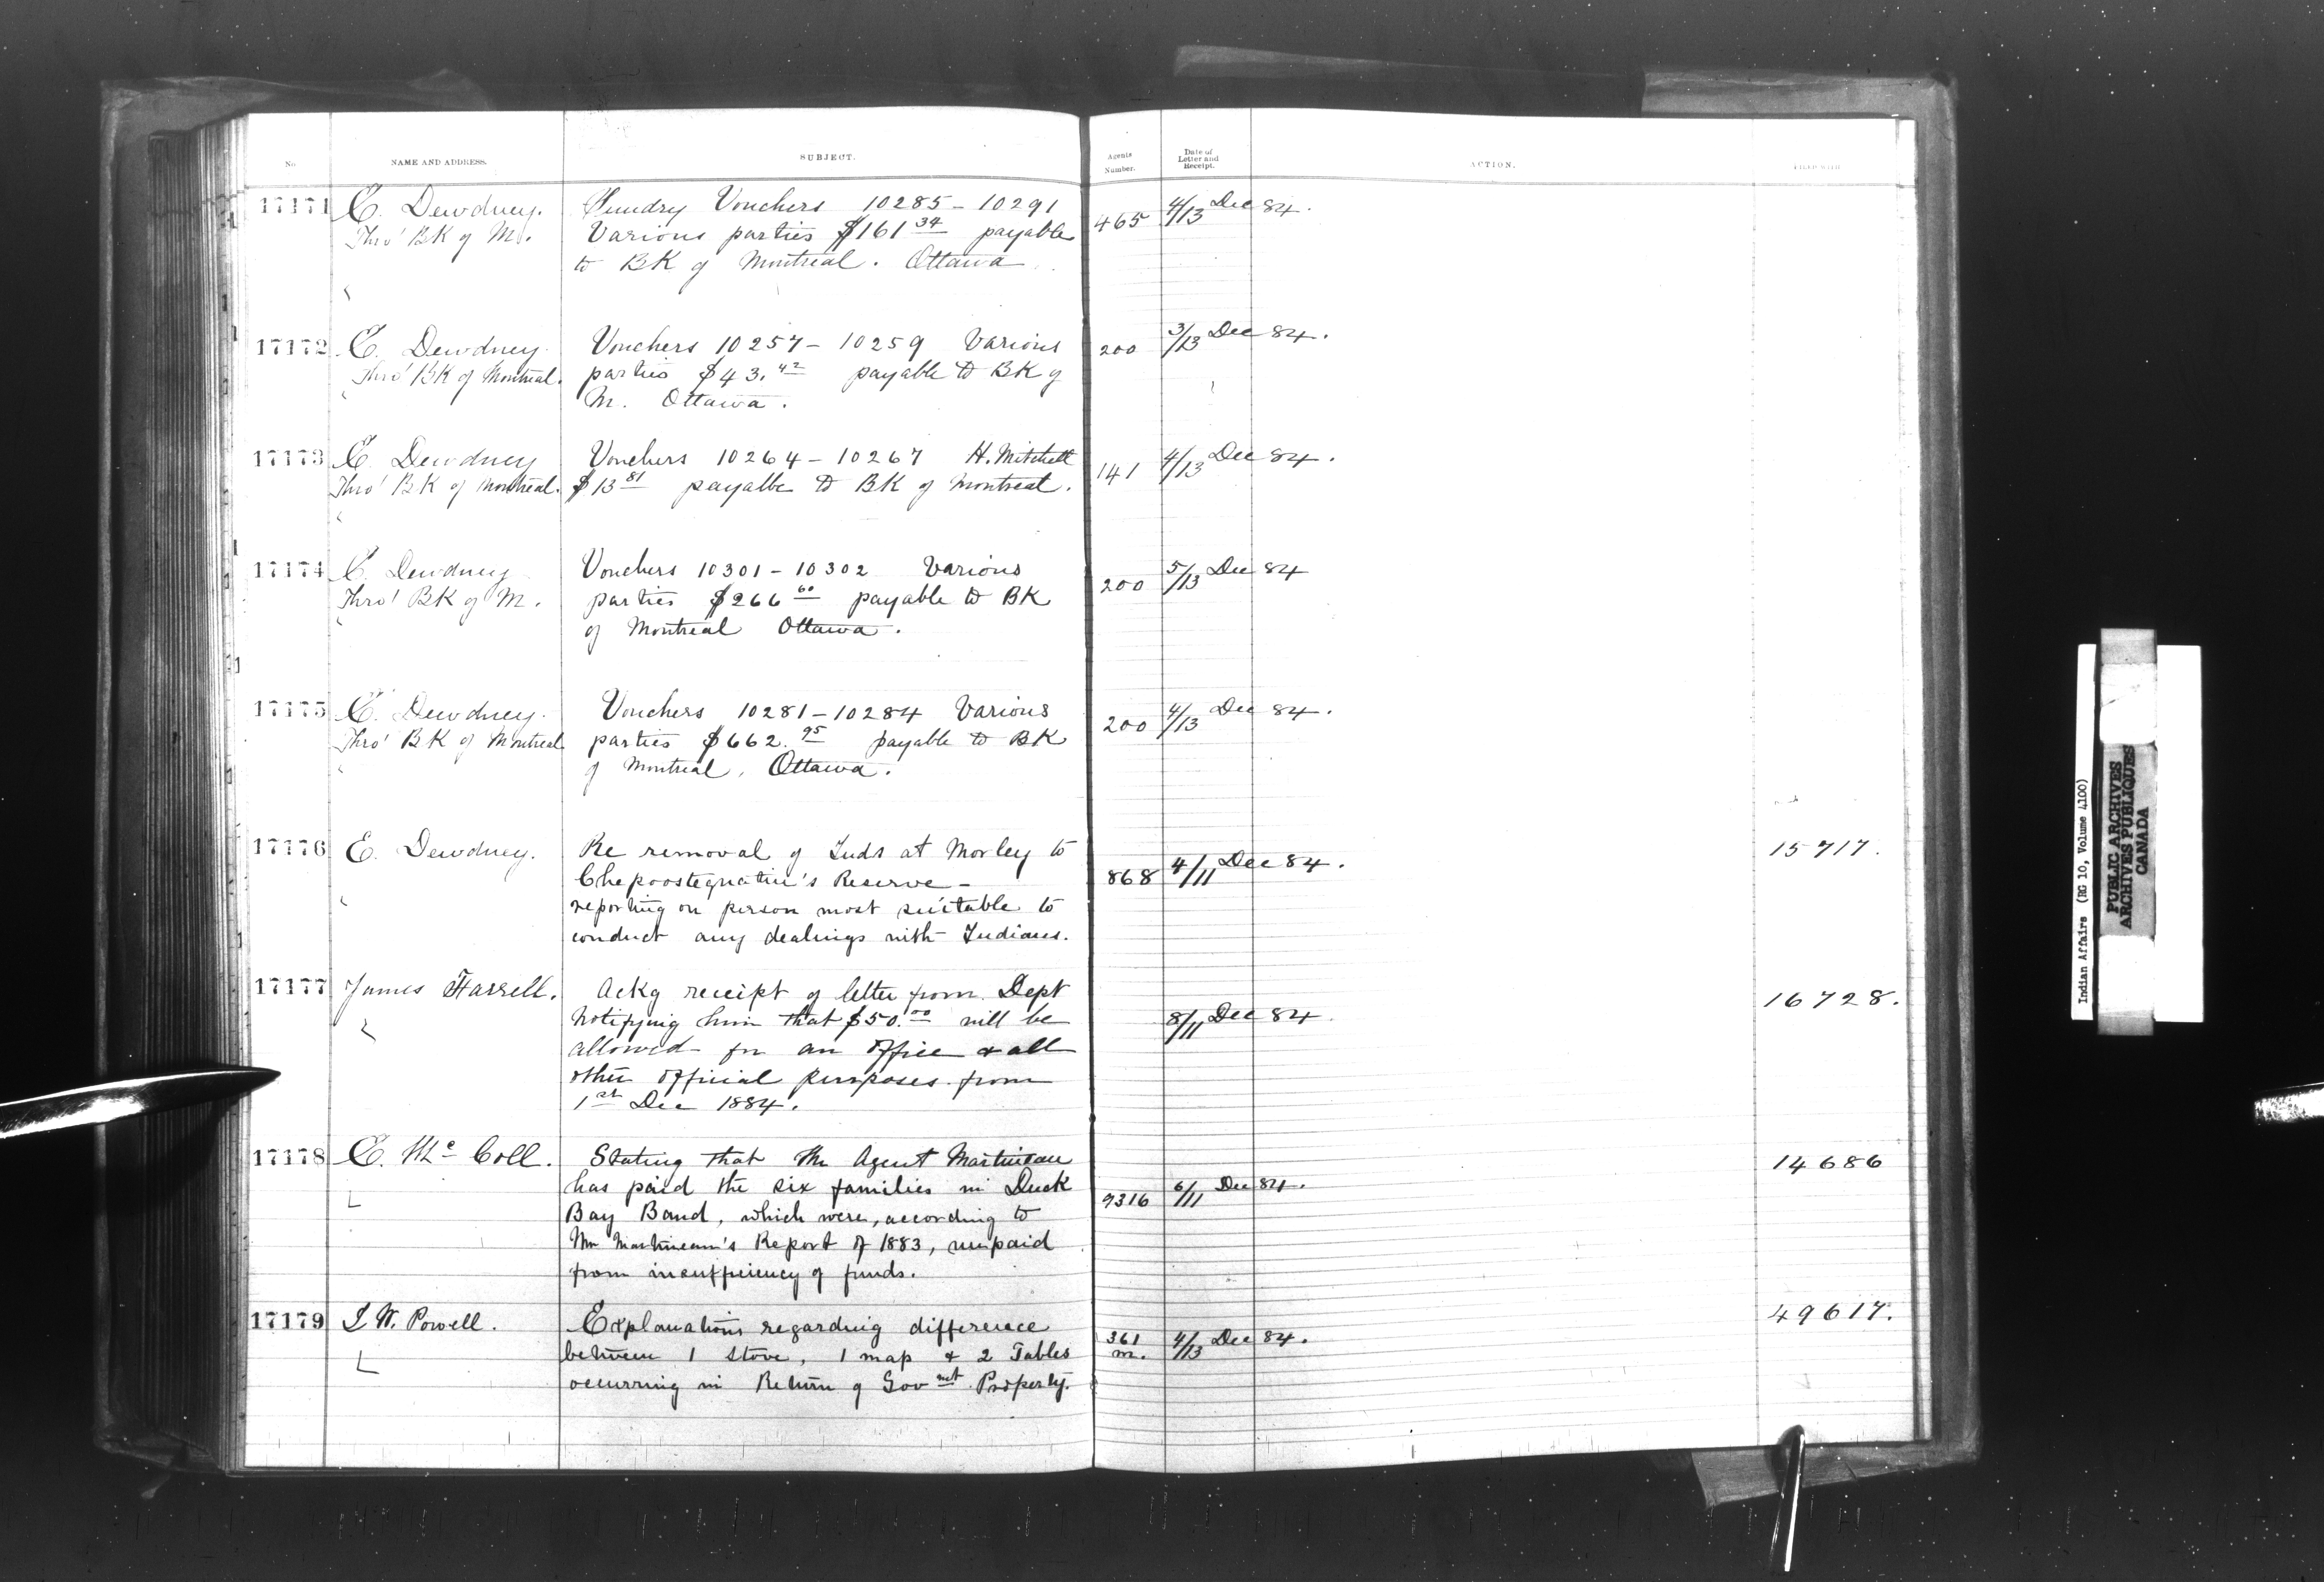 No. NAME AND ADDRESS. SUBJECT. Agents Number. Date of Letter and Receipt. ACTION. FILED WITH
17171 E. Dewdney. Sundry Vouchers 10285 - 10291 465 4/13 Dec 84.
Thro' BK of M. Various parties $161 34 payable
to BK of Montreal. Ottawa
17172 E. Dewdney. Vouchers 10257 - 10259 Various 200 3/13 Dec 84.
Thro' BK of Montreal. parties $43.42 payable to BK of
M. Ottawa.
17173 E. Dewdney Vouchers 10264 - 10267 H. Mitchell 141 4/13 Dec 84.
Thro' BK of Montreal. $13 81 payable to BK of Montreal.
17174 E. Dewdney Vouchers 10301 - 10302 Various 200 5/13 Dec 84
Thro' BK of M. parties $266 60 payable to BK
of Montreal Ottawa.
17175 E. Dewdney. Vouchers 10281 - 10284 Various 200 4/13 Dec 84.
Thro' BK of Montreal parties $662.95 payable to BK
of Montreal. Ottawa.
17176 E. Dewdney. Re removal of Inds at Morley to 868 4/11 Dec 84. 15717.
Reserve -
reporting on person most suitable to
conduct any dealings with Indians.
17177 James Farrell. Ackg receipt of letter from Dept 8/11 Dec 84 16728.
notifying him that $50.00 will be
allowed for an office & all
other official purposes from
1st Dec 1884.
17178 E. Mc Coll. Stating that the Agent Martineau 9316 6/11 Dec 84. 14686
has paid the six families in Duck
Bay Band, which were, according to
Mr Martineau's Report of 1883, unpaid
from insufficiency of funds.
17179 I. W. Powell. Explanations regarding difference 361 m. 4/13 Dec 84. 49617.
between 1 stove, 1 map & 2 Tables
occurring in Return of Govmnt Property.
Indian Affairs (RG 10, Volume 4100)
PUBLIC ARCHIVES
ARCHIVES PUBLIQUES
CANADA